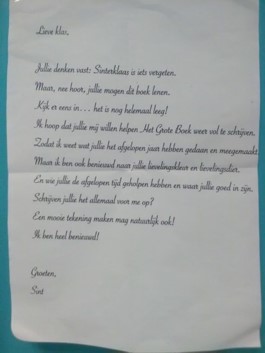 Lieve klas,
Jullie denken vast: Sinterklaas is iets vergeten.
Maar, nee hoor, jullie mogen dit boek lenen.
Kijk er eens in... het is nog helemaal leeg!
Ik hoop dat jullie mij willen helpen Het Grote Boek weer vol te schrijven,
Zodat ik weet wat jullie het afgelopen jaar hebben gedaan en meegemaakt.
Maar ik ben ook benieuwd naar jullie lievelingskleur en lievelingsdier.
En wie jullie de afgelopen tijd geholpen hebben en waar jullie goed in zijn.
Schrijven jullie het allemaal voor me op?
Een mooie tekening maken mag natuurlijk ook!
Ik ben heel benieuwd!
Groeten,
Sint